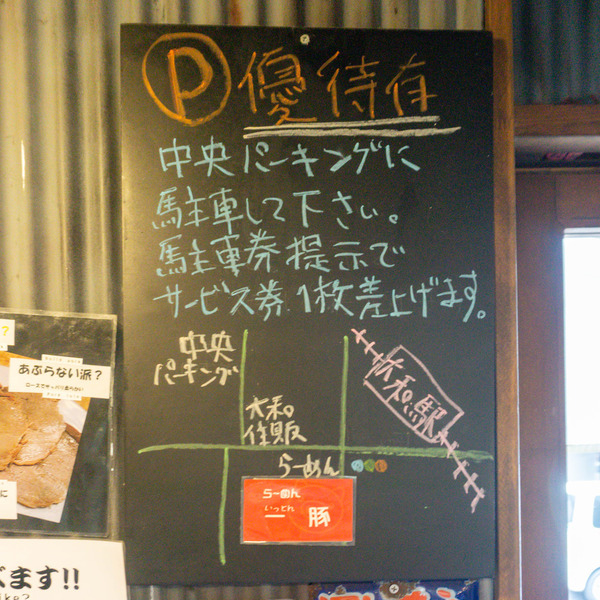 Ⓟ優待有
中央パーキングに
駐車して下さい。
駐車券提示で
サービス券1枚差上げます。
中央
パーキング
大和
住販
大和駅
らーめん
らーめん
いっとん
豚
?
あぶらない派?
に
べます!!